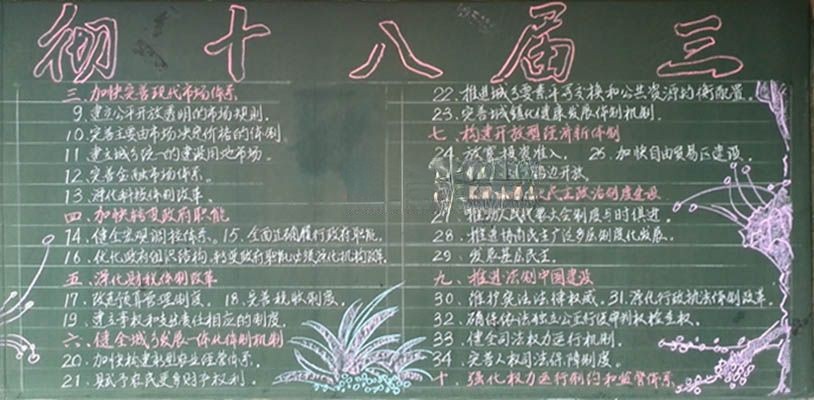 彻 十 八 届 三
三、加快完善现代市场体系
9、建立公开开放透明的市场规则。
10、完善主要由市场决定价格的体制
11、建立城乡统一的建设用地市场。
12、完善金融市场体系。
13、深化科技体制改革。
四、加快转变政府职能
14、健全宏观调控体系。15、全面正确履行政府职能。
16、优化政府组织结构,转变政府职能必须深化机构改革。
五、深化财税体制改革
17、改进预算管理制度。18、完善税收制度。
19、建立事权和支出责任相应的制度。
六、健全城乡发展一体化体制机制
20、加快构建新型农业经营体系。
21、赋予农民更多财产权利
22、推进城乡要素平等交换和公共资源均衡配置。
23、完善城镇化健康发展体制机制。
七、构建开放型经济新体制
24、放宽投资准入。25、加快自由贸易区建设。
沿边开放。
民主政治制度建设
27、推动人大代表大会制度与时俱进。
28、推进协商民主广泛多层制度化发展。
29、发展基层民主。
九、推进法制中国建设
30、维护宪法法律权威。31、深化行政执法体制改革。
32、确保依法独立公正行使审判权检查权。
33、健全司法权力运行机制。
34、完善人权司法保障制度。
十、强化权力运行制约和监管体系